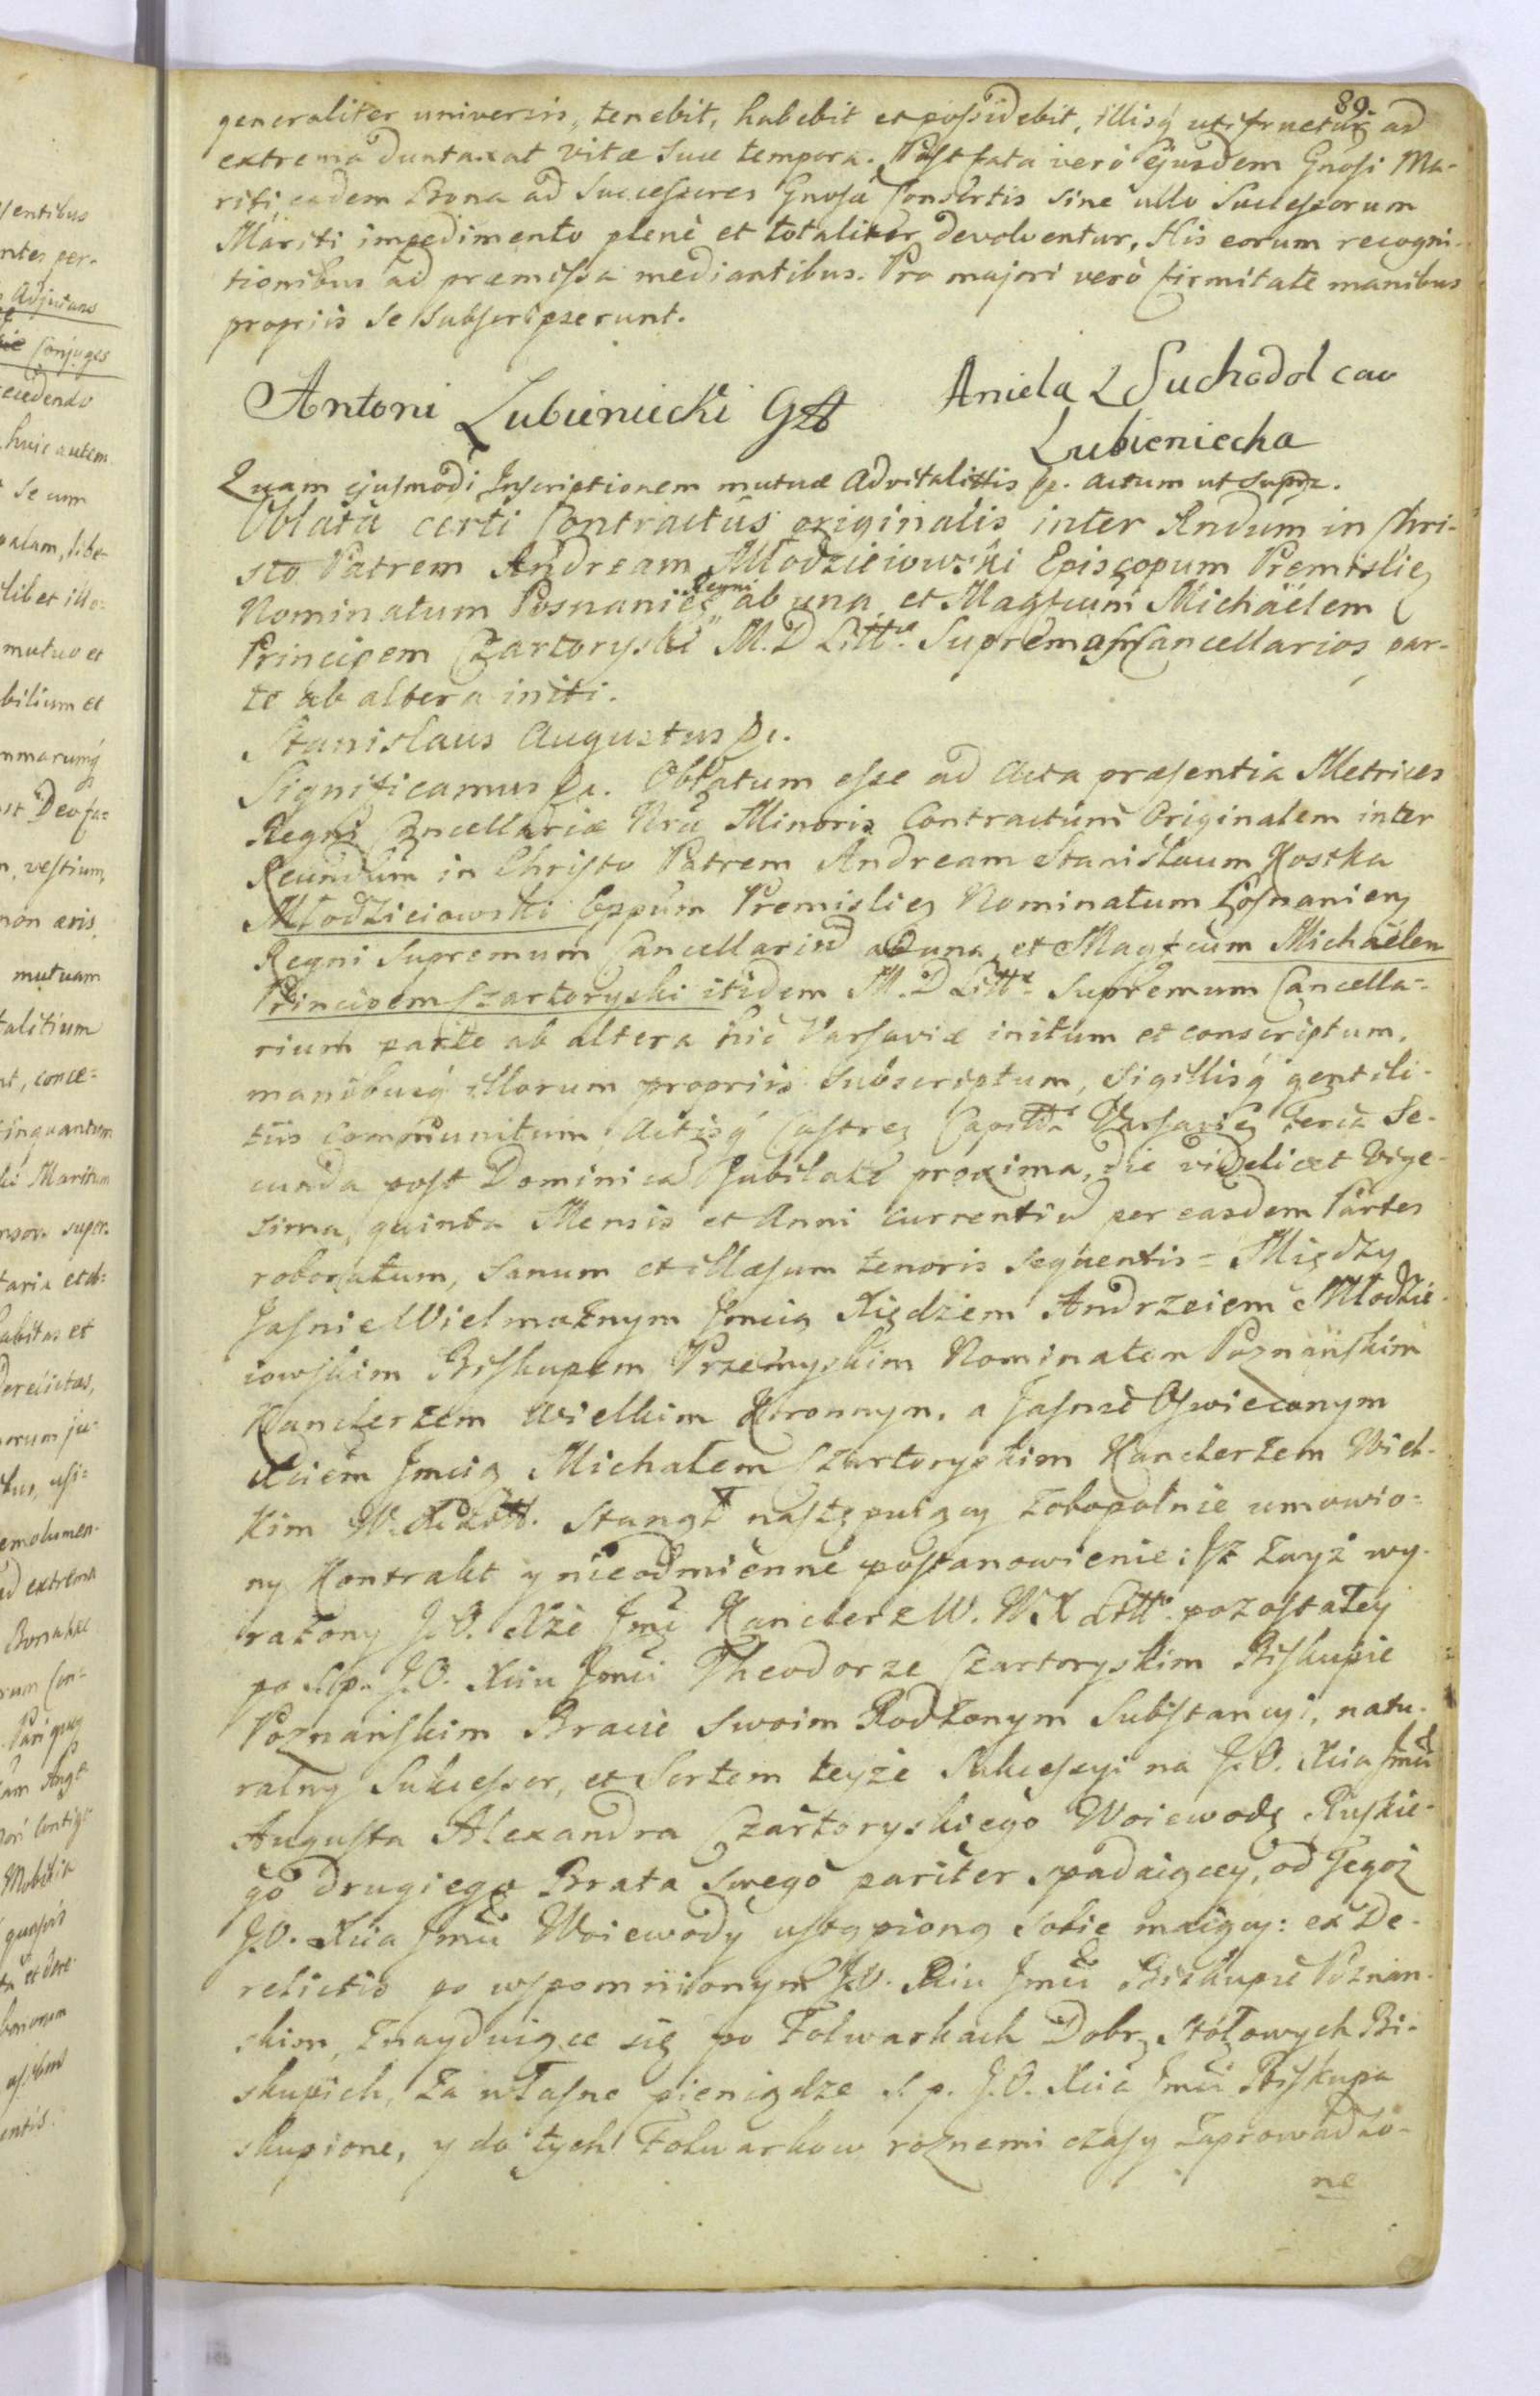 89.
generaliter universis, tenebit, habebit et possidebit, illisq utifruetur ad
extrema duntaxat vitæ suæ tempora. Post fata verò ejusdem Gnosi Ma-
riti eadem Bona ad Successores Gnosæ Consortis sine ullo Successorum
Mariti impedimento plenè et totaliter devolventur, His eorum recogni-
tionibus ad præmissa mediantibus. Pro majori verò firmitate manibus
propriis se subscripserunt.
Antoni Lubieniecki
Aniela Suchodolcow
Lubieniecka
Quam ejusmodi Inscriptionem mutuæ Advitalittis &c. actum ut supra.
Oblata certi Contractûs originalis inter Rndum in Chri-
sto Patrem Andream Młodzieiowski Episcopum Premislien
Nominatum Posnanien Regni ab una, et Magfcum Michaëlem
Principem Czartoryski M. D. Litt. Supremos Cancellarios par-
te ab altera initi.
Stanislaus Augustus &c.
Significamus &c. Oblatum esse ad Acta præsentia Metrices
Regni Cancellariæ Nræ Minoris Contractum Originalem inter
Reundum in Christo Patrem Andream Stanislaum Kostka
Młodzieiowski Eppum Premislien Nominatum Posnanien
Regni Supremum Cancellarium ab una, et Magfcum Michaëlem
Principem Czartoryski itidem M. D. Litt. Supremum Cancella-
rium parte ab altera hic Varsaviæ initum et conscriptum,
manibusq illorum propriis subscriptum, sigillisq gentili-
tiis communitum, Actisq Castren Capitan Varsavien Feria Se-
cunda post Dominicam Jubilate proxima, die videlicet Vige-
sima quinta Mensis et Anni currentium per easdem Partes
roboratum, sanum et illæsum tenoris sequentis = Między
Jasnie Wielmożnym Jmcią Xiędzem Andrzeiem Młodzie-
iowskim Biskupem Przemyskim Nominatem Poznańskim
Kanclerzem Wielkim Koronnym, a Jasnie Oswieconym
Xciem Jmcią Michałem Czartoryskim Kanclerzem Wiel-
kim W. X. Litt. stanął następuiący zobopolnie umowio-
ny Kontrakt y nieodmienne postanowienie: Iż zwyż wy-
rażony J. O. Xże Jmć Kanclerz W. W X Litt. pozostałey
po s.p. J. O. Xciu Jmci Theodorze Czartoryskim Biskupie
Poznanskim Bracie swoim Rodzonym Substancyi, natu-
ralny Sukcessor, et Sortem teyże Sukcessyi na J. O. Xcia Jmci
Augusta Alexandra Czartoryskiego Woiewodę Ruskie-
go drugiego Brata swego pariter spadaiącey, od Tegoż
J. O. Xcia Jmci Woiewody ustąpioną sobie maiący: ex De-
relictis po wspomnionym J. O. Xciu Jmci Biskupie Poznan-
skim, znayduiące się po Folwarkach Dobr Stołowych Bi-
skupich, za własne pieniądze s. p. J. O. Xcia Jmci Biskupa
skupione, y do tych Folwarkow roznemi czasy zaprowadzo-
ne